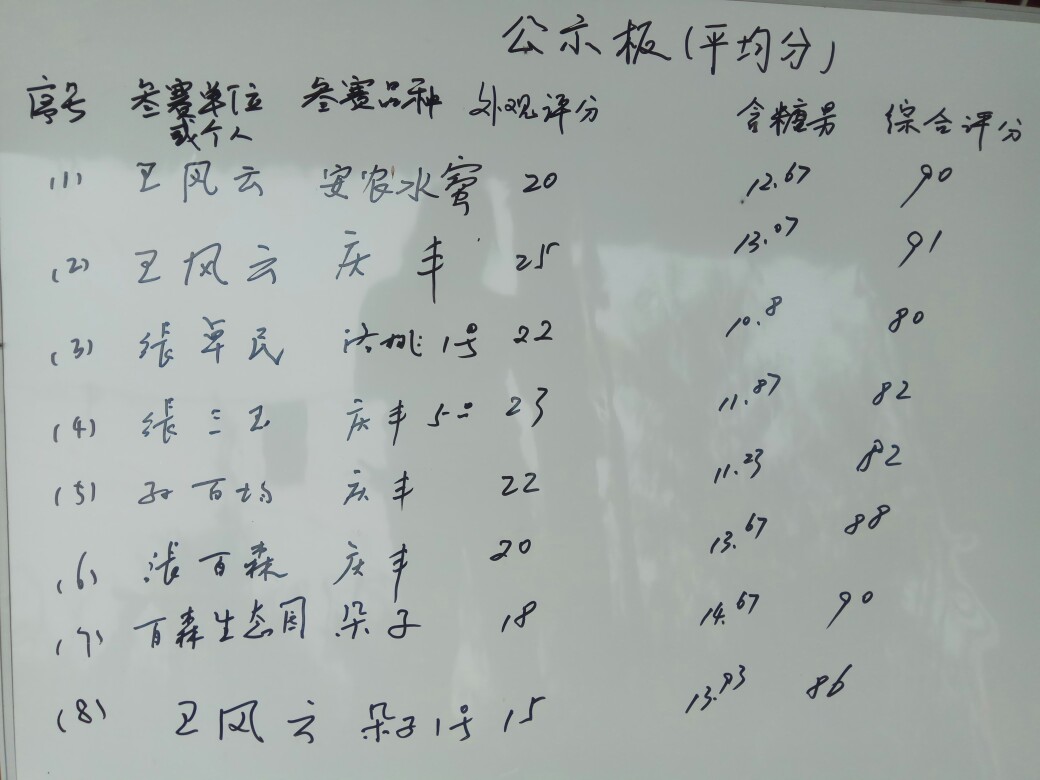 公示板(平均分)
序号 参赛单位或个人 参赛品种 外观评分 含糖量 综合评分
(1) 卫风云 安农水蜜 20 12.67 90
(2) 卫风云 庆丰 25 13.07 91
(3) 张卓民 沙桃1号 22 10.8 80
(4) 张三玉 庆丰 23 11.87 82
(5) 孙百均 庆丰 22 11.23 82
(6) 张百森 庆丰 20 13.67 88
(7) 百森生态园 朵子 18 14.67 90
(8) 卫风云 朵子1号 15 13.93 86